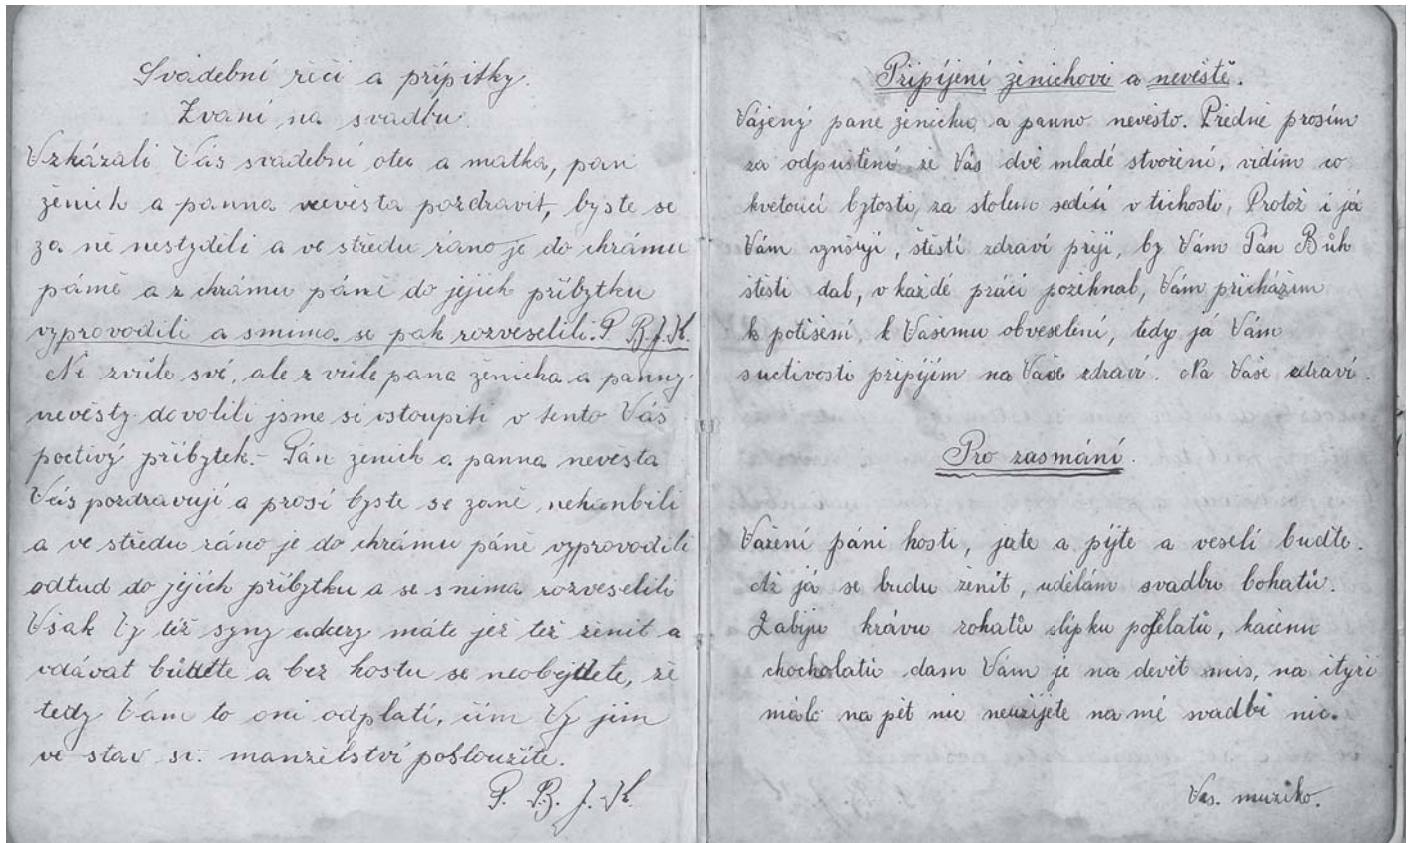 Svadební řeči a přípitky.
Zvaní na svadbu.
Vzkázali Vás svadební otec a matka, pan
ženich a panna nevěsta pozdravit, byste se
za ně nestyděli a ve středu ráno je do chrámu
páně a z chrámu páně do jejich příbytku
vyprovodili a snima se pak rozveselili. P. B. J. K.
Ne z vůle své, ale z vůle pana ženicha a panny
nevěsty dovolili jsme si vstoupiti v tento Váš
poctivý příbytek.- Pán ženich a panna nevěsta
Vás pozdravují a prosí byste se zaně nehanbili
a ve středu ráno je do chrámu páně vyprovodili
odtud do jejich příbytku a se s nima rozveselili
Však Vy též syny a dcery máte jež též ženit a
vdávat budete a bez hostu se neobejdete, že
tedy Vám to oni odplatí, čím Vy jim
ve stav sv. manželství posloužíte.
P. B. J. K.
Připíjení ženichovi a nevěstě.
Vájený pane ženichu a panno nevěsto. Předně prosím
za odpuštění že Vás dvě mladé stvoření, vidím co
kvetoucí bytosti, za stolem sedíc v tichosti, Protož i já
Vám vynšuji, štěstí zdraví přeji, by Vám Pán Bůh
štěstí dal, v každé práci požehnal, Vám přicházím
k potěšení, k Vašemu obveselení, tedy já Vám
suctivostí připíjím na Vaše zdraví. Na Vaše zdraví.
Pro zasmání.
Vážení páni hosti, jezte a pijte a veselí buďte.
Až já se budu ženit, udělám svadbu bohatů.
Zabiju krávu rohatů slípku pofelatů, kačenu
chocholatů dam Vám je na devět mis, na čtyři
málo na pět nic neužijete na mé svadbě nic.
Vás. muziko.